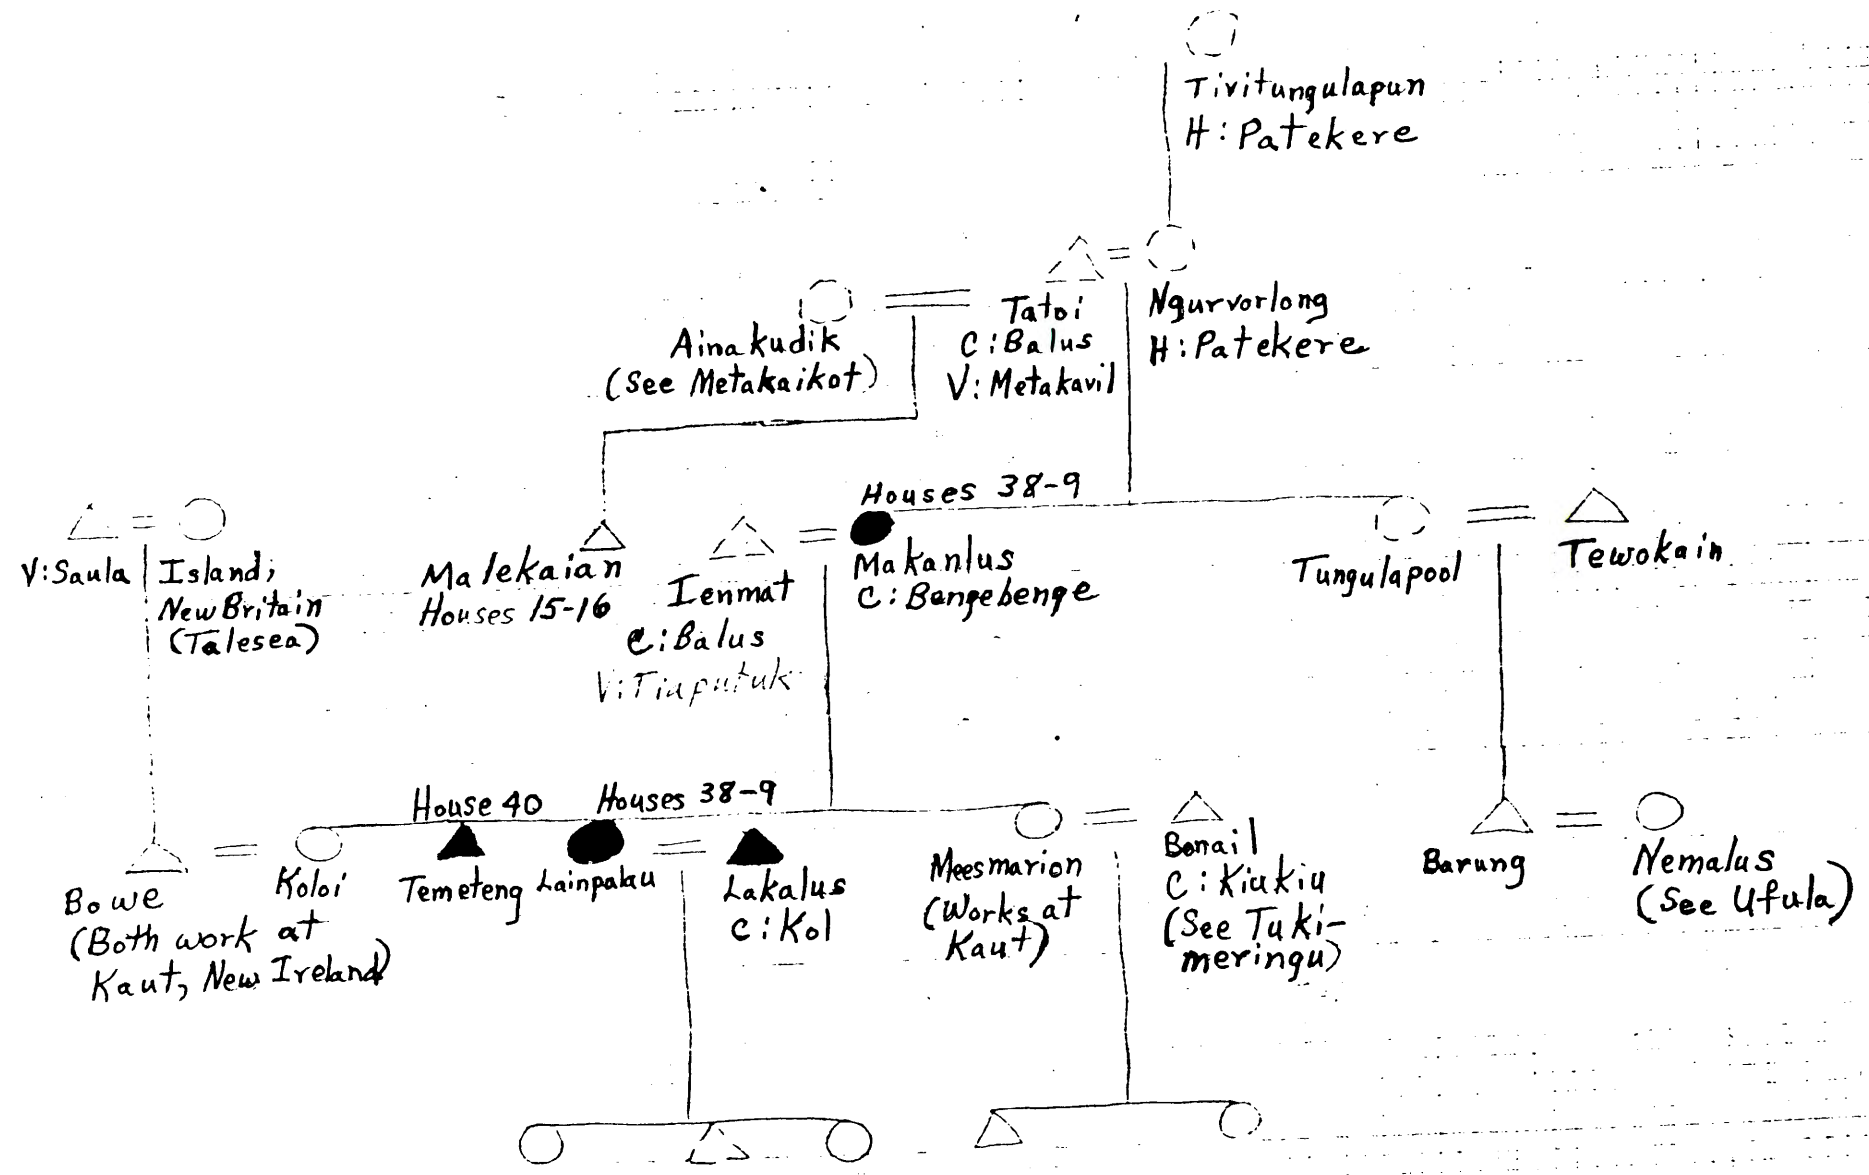 Tivitungulapun
H: Patekere
Tatoi
C: Balus
V: Metakavil
Ngurvorlong
H: Patekere
Ainakudik
(See Metakaikot)
Houses 38-9
V: Saula
Island;
New Britain
(Talesea)
Malekaian
Houses 15-16
Ienmat
C: Balus
V: Tiaputuk
Makanlus
C: Bengebenge
Tungulapool
Tewokain
House 40
Houses 38-9
Bowe
(Both work at
Kaut, New Ireland)
Koloi
Temeteng
Lainpalau
Lakalus
C: Kol
Meesmarion
(Works at
Kaut)
Bonail
C: Kiukiu
(See Tuki-
meringu)
Barung
Nemalus
(See Ufula)